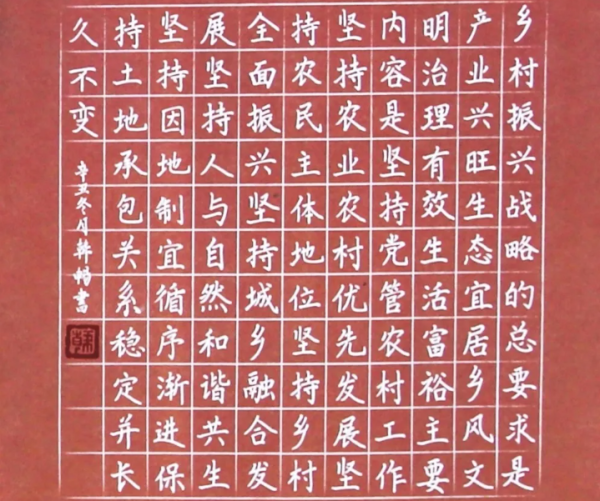 乡村振兴战略的总要求是
产业兴旺生态宜居乡风文
明治理有效生活富裕主要
内容是坚持党管农村工作
坚持农业农村优先发展坚
持农民主体地位坚持乡村
全面振兴坚持城乡融合发
展坚持人与自然和谐共生
坚持因地制宜循序渐进保
持土地承包关系稳定并长
久不变
辛丑冬月韩畅书